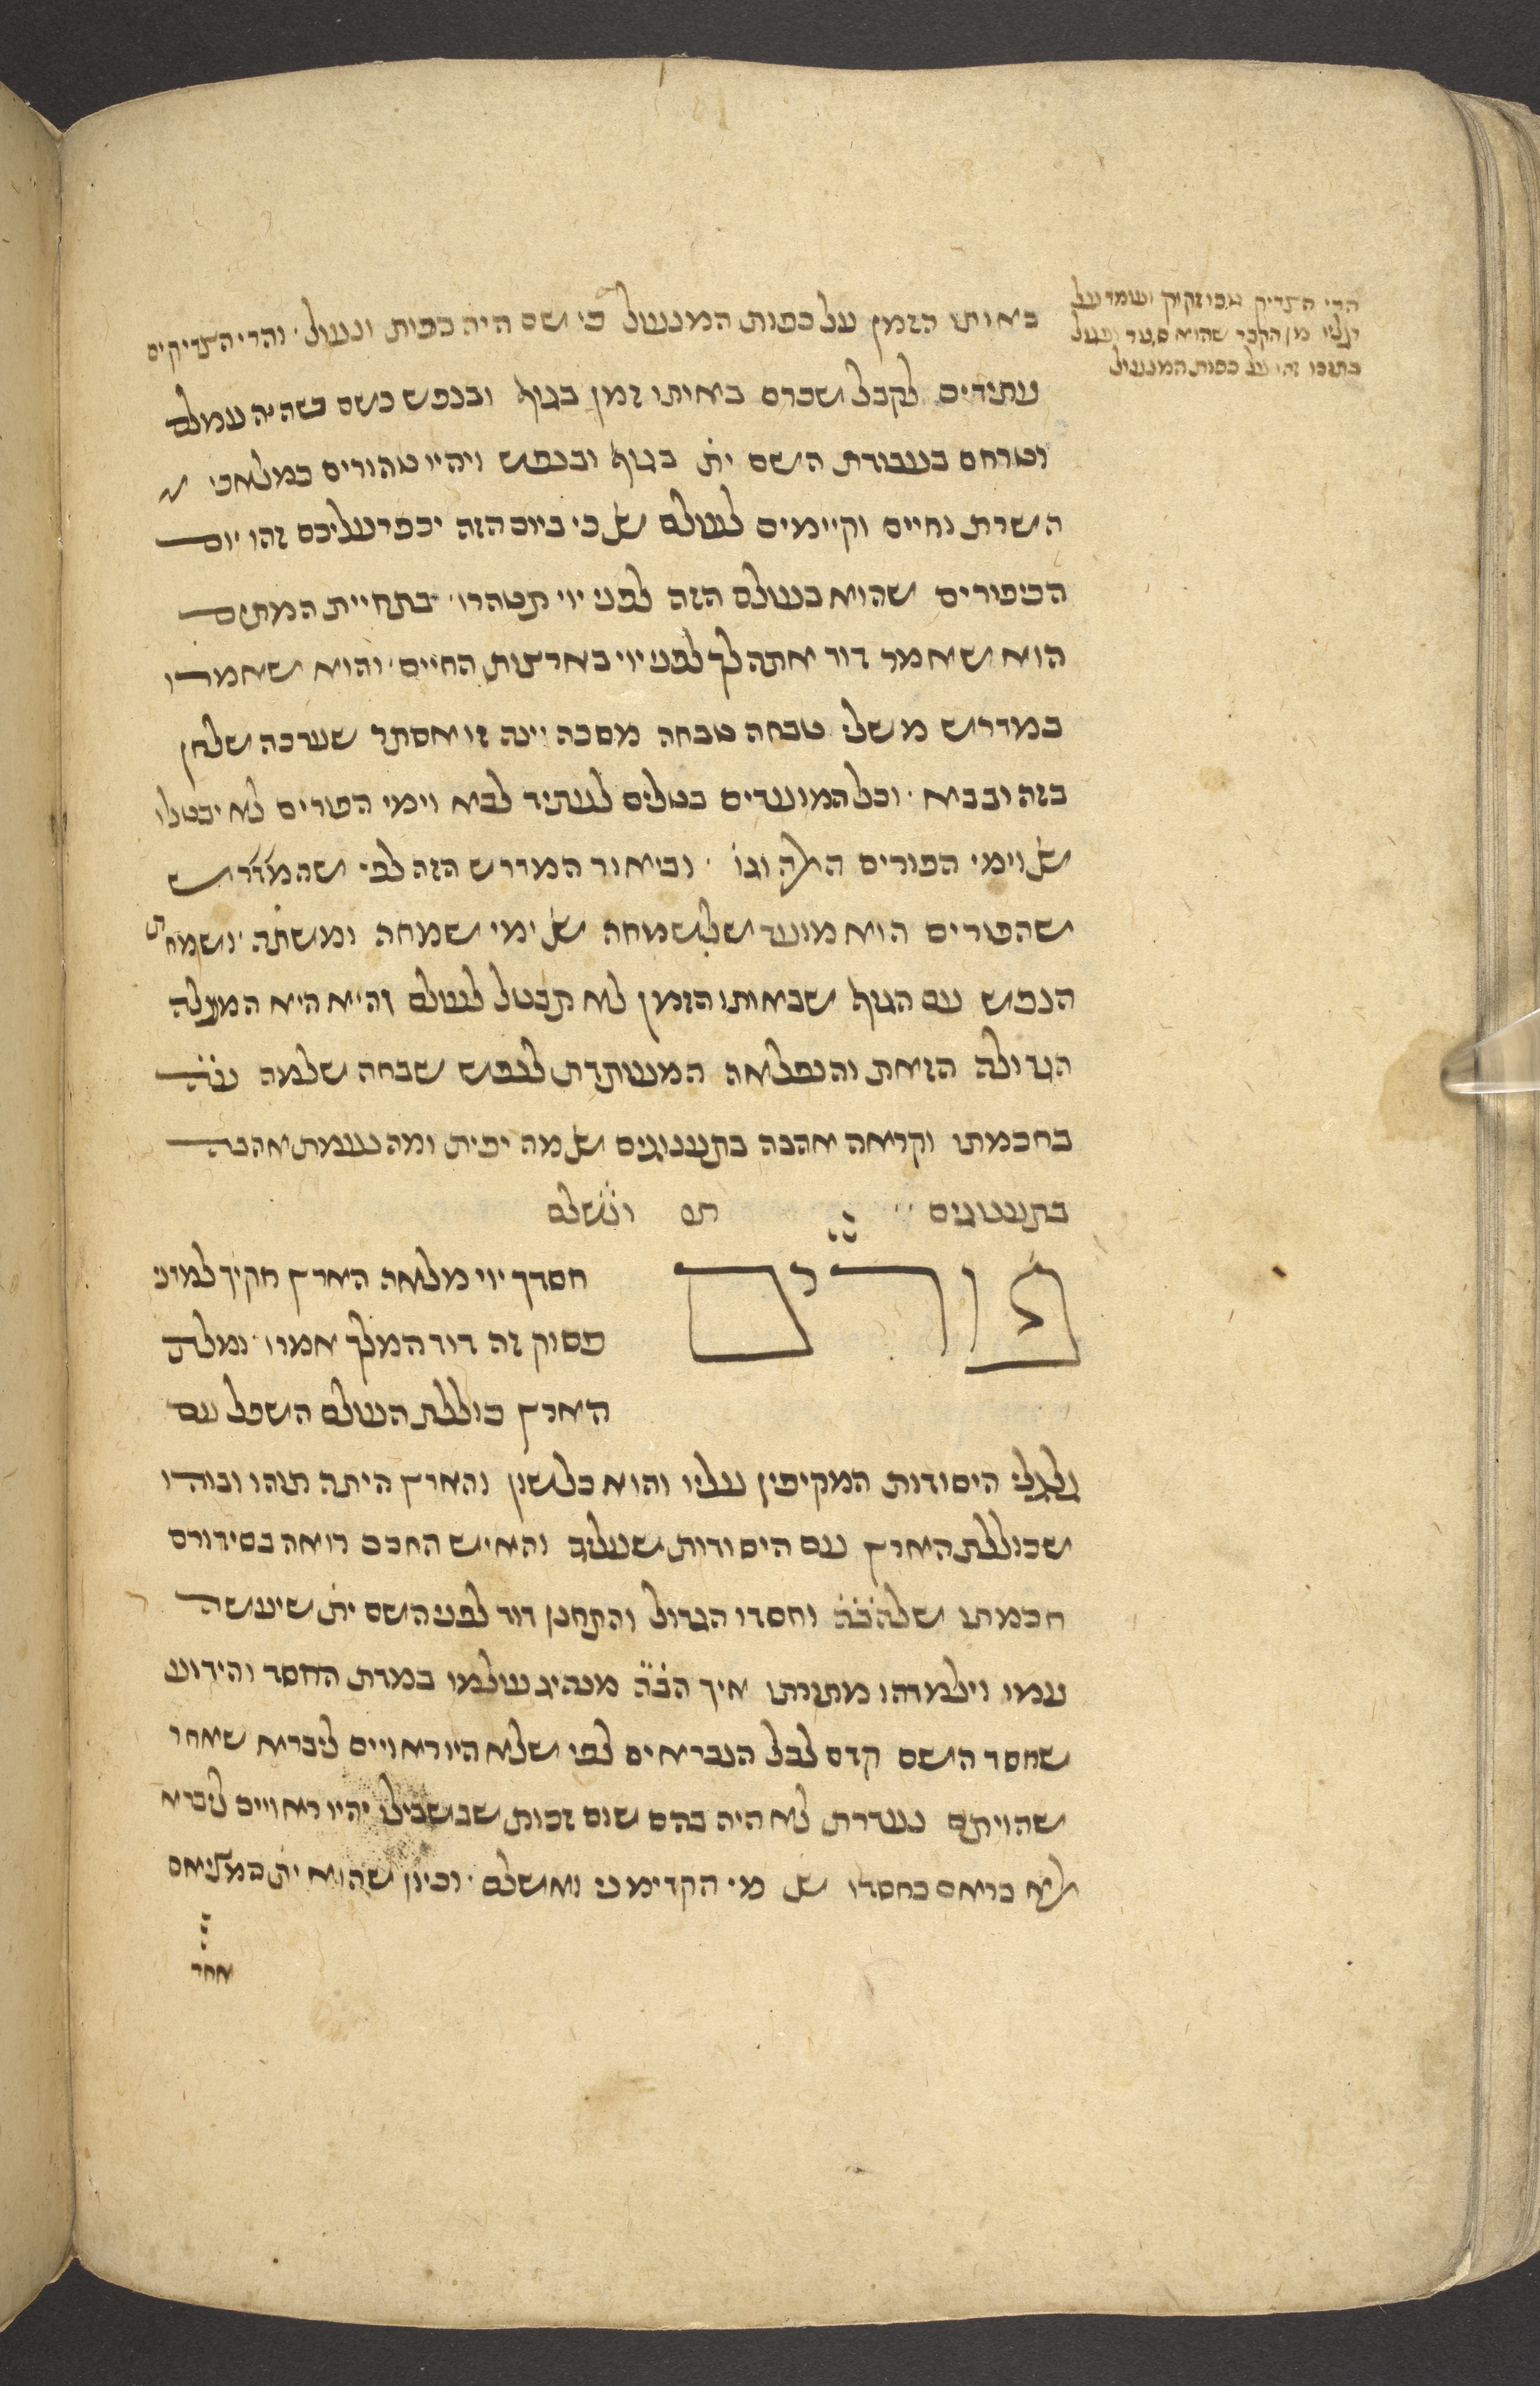 הרי הצדיק גופו זקוק ועומד על
רגליו מן הקבר שהוא סגור ונעל
בתוכו זהו על כפות המנעול
באותו הזמן על כפות המנעול כי שם היה כפות ונעול׳ והרי הצדיקים
עתידים לקבל שכרם באותו זמן בגוף ובנפש כשם שהיה עמלם
וטרחם בעבודת השם ית׳ בגוף ובנפש ויהיו טהורים כמלאכי
השרת וחיים וקיימים לעולם שנ׳ כי ביום הזה יכפר עליכם זהו יום
הכיפורים שהוא בעולם הזה לפני יוי תטהרו׳ בתחיית המתים
הוא שאמר דוד אתהלך לפני יוי בארצות החיים׳ והוא שאמרו
במדרש משלי טבחה טבחה מסכה יינה זו אסתר שערכה שלחן
בזה ובבא׳ וכל המועדים בטלים לעתיד לבא וימי הפורים לא יבטלו
שנ׳ וימי הפורים האלה וגו׳ וביאור המדרש הזה לפי שהמדרש
שהפורים הוא מועד של שמחה שנ׳ ימי שמחה ומשתה׳ ושמחת
הנפש עם הגוף שבאותו הזמן לא תבטל לעולם והיא היא המעלה
הגדולה הזאת והנפלאה המעותדת לנפש שבחה שלמה ע״ה
בחכמתו וקראה אהבה בתענוגים שנ׳ מה יפית ומה נעמת אהבה
בתענוגים תם ונשלם
פורים
חסדך יוי מלאה הארץ חקיך למדני
פסוק זה דוד המלך אמרו׳ ומלת
הארץ כוללת העולם השפל עם
גלגלי היסודות המקיפין עליו והוא כלשון והארץ היתה תהו ובוהו
שכוללת הארץ עם היסודות שעליה והאיש החכם רואה בסידורם
חכמתו של הב״ה וחסדו הגדול והתחנן דוד לפני השם ית׳ שיעשה
עמו וילמדהו מתורתו איך הב״ה מנהיג עולמו במדת החסד והידוע
שחסד השם קדם לכל הנבראים לפי שלא היו ראויים ליברא שאחר
שהויתם נעדרת לא היה בהם שום זכות שבשבילו יהיו ראויים ליברא
אלא בראם בחסדו שנ׳ מי הקדימני ואשלם׳ וכיון שהוא ית׳ המציאם
אחר